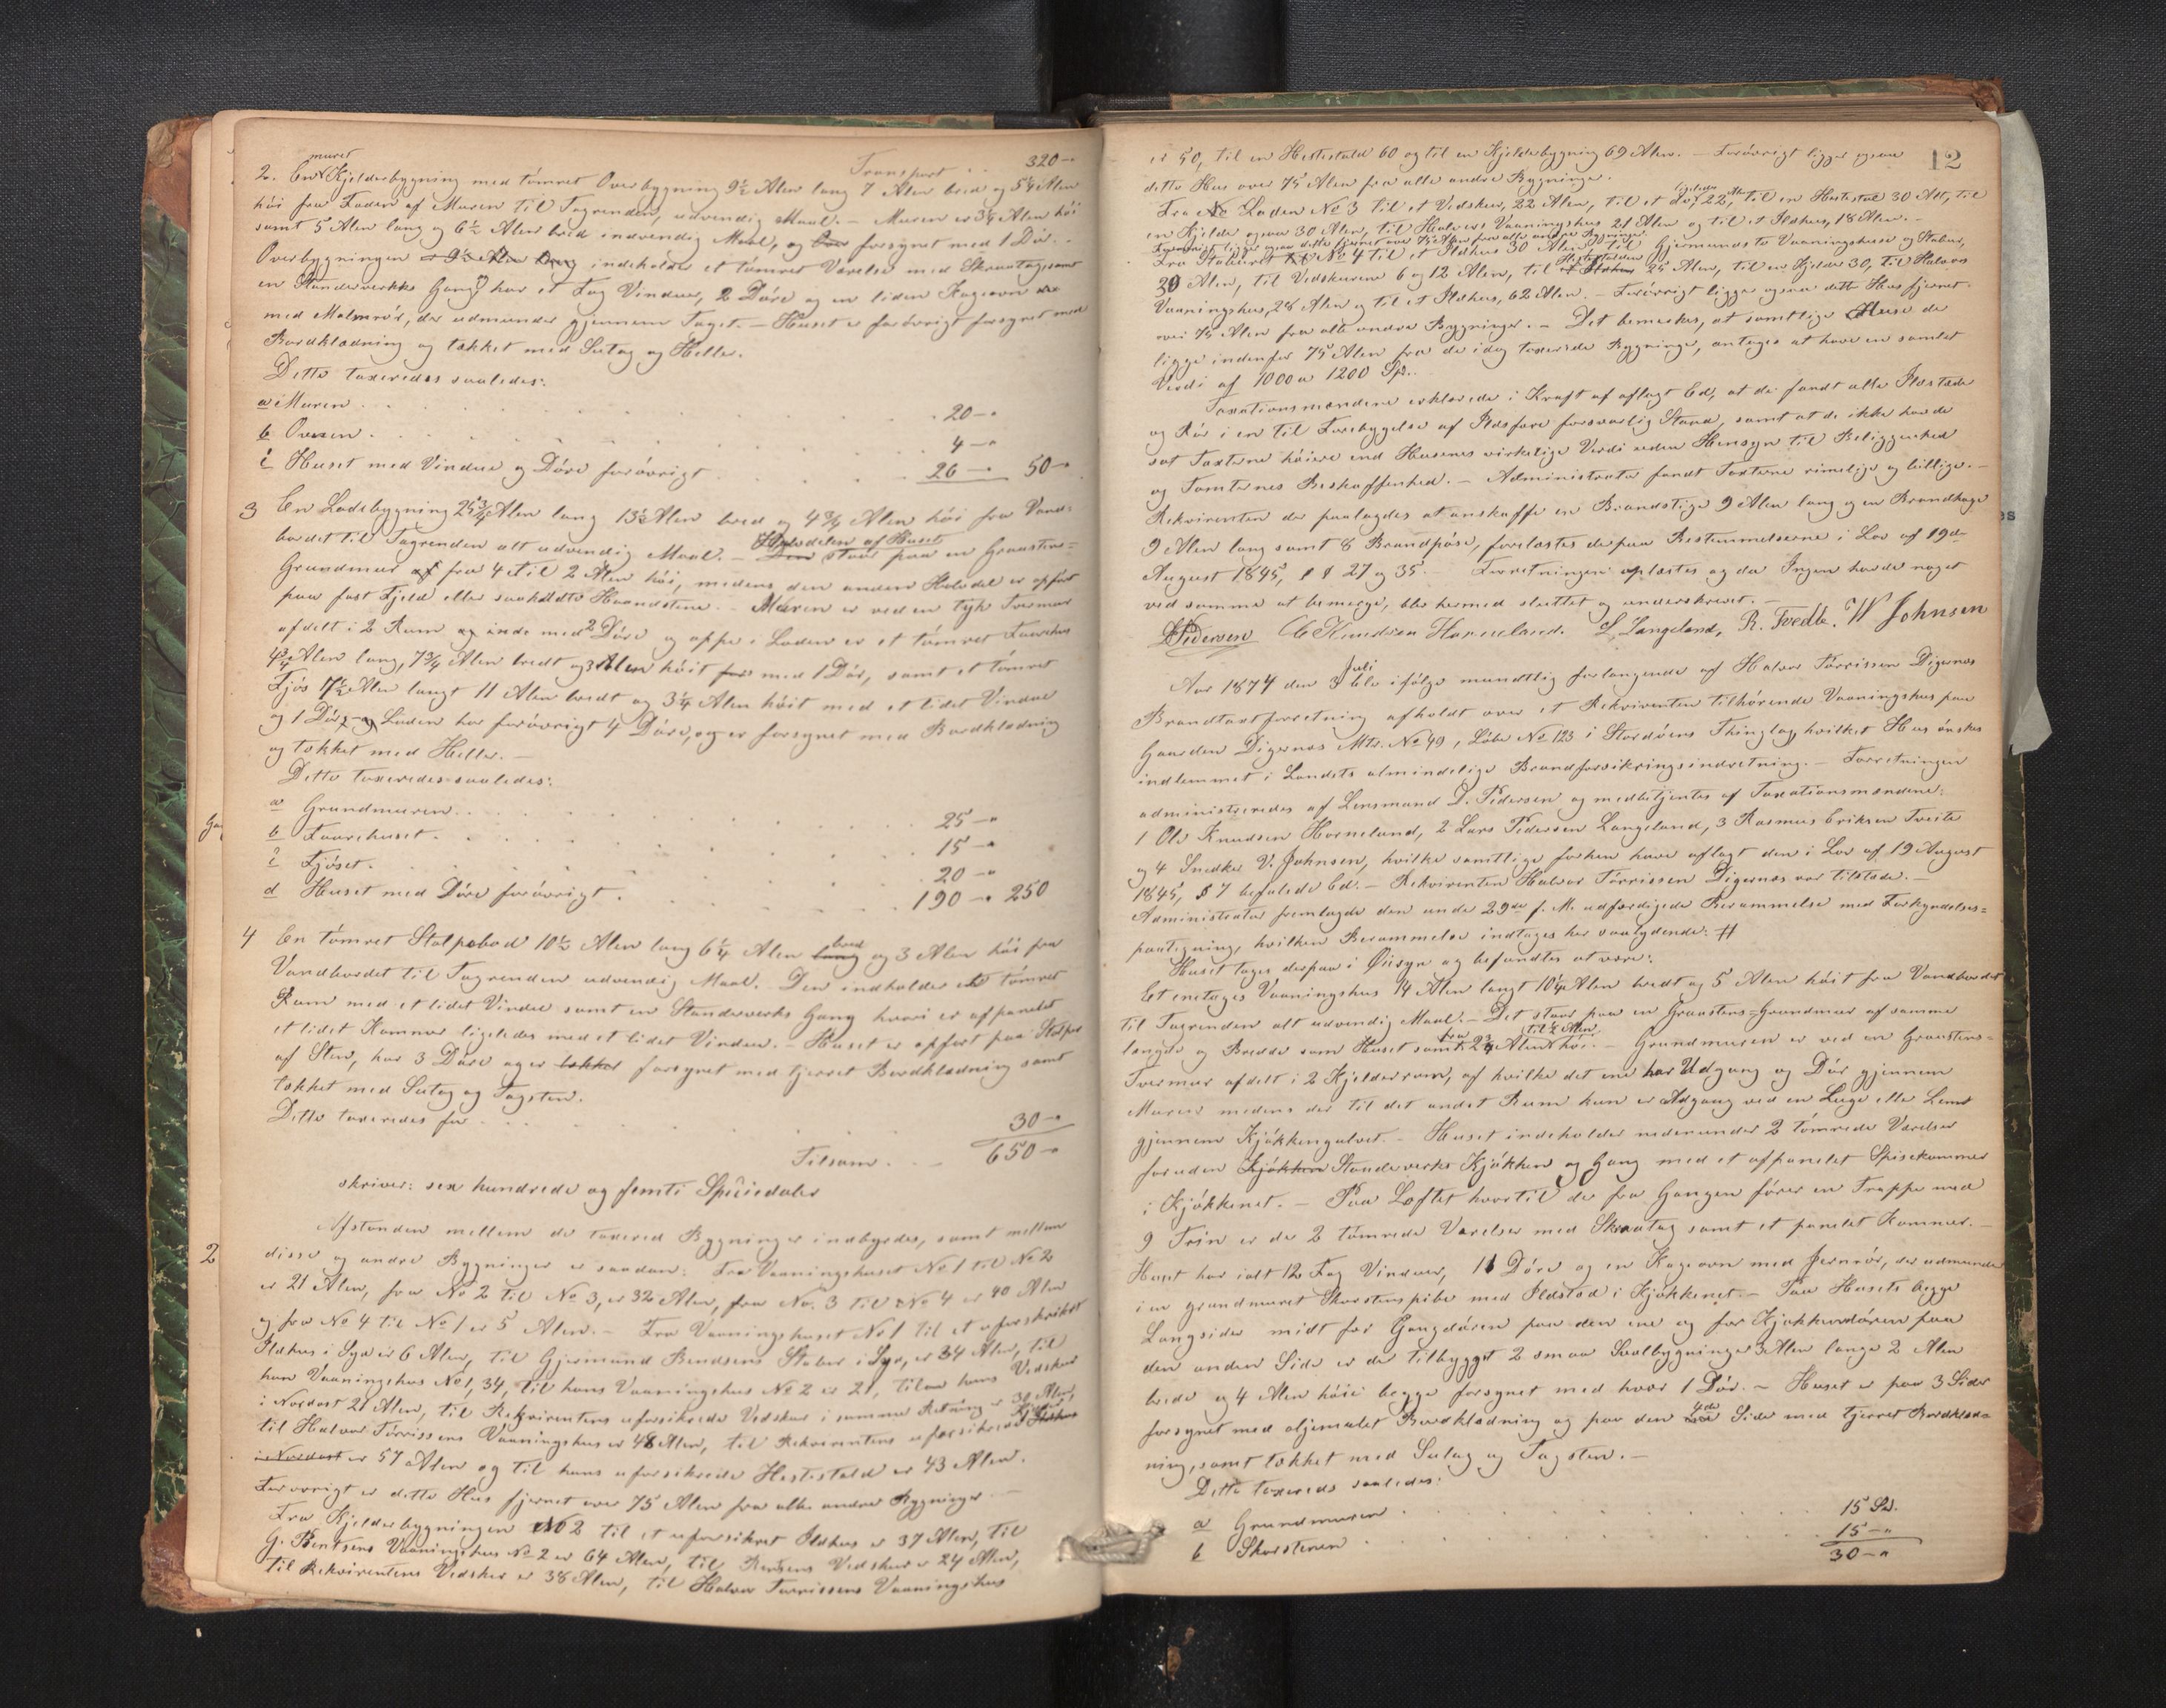 Transport . . 320-"
2. En muret Kjelderbygning med tømret Overbygning 9½ Alen lang 7 Alen bred og 5¼ Alen
høi fra Foden af Muren til Tagrenden, udvendig Maal. - Muren er 3¼ Alen høi
samt 5 Alen lang og 6½ Alen bred indvendig Maal, og forsynet med 1 Dør. -
Overbygningen indeholder et tømret Værelse med Skraatag, samt
en Stenderverks Gang, har et Fag Vinduer, 2 Døre og en liden Kogeovn
med Malmrør, der udmunder gjennem Taget. - Huset er forøvrigt forsynet med
Bordklædning og tækket med Sutag og Heller.
Dette taxeredes saaledes:
a Muren . . . 20-"
b Ovnen . . . 4-"
c Huset med Vindue og Døre forøvrigt . . . 26-" 50-"
3 En Ladebygning 25¾ Alen lang 13½ Alen bred og 4¾ Alen høi fra Vand-
bordet til Tagrenden alt udvendig Maal. - Halvdelen af Huset staar paa en Graastens-
Grundmur fra 4 til 2 Alen høi, medens den anden Halvdel er opført
paa fast Fjeld eller saakaldte Haandstene. - Muren er ved en tyk Tvermur
afdelt i 2 Rum inde med 2 Døre og oppe i Laden er et tømret Faarehus
4¾ Alen lang, 7¾ Alen bredt og 3 Alen høit med 1 Dør, samt et tømret
Fjøs 17½ Alen langt 11 Alen bredt og 3¼ Alen høit med et lidet Vindue
og 1 Dør, - Laden har forøvrigt 4 Døre, og er forsynet med Bordklædning
og tækket med Heller. -
Dette taxeredes saaledes:
a Grundmuren . . . 25-"
b Faarehuset . . . 15-"
c Fjøset . . . 20-"
d Huset med Døre forøvrigt . . . 190-" 250
4 En tømret Stolpebod 10½ Alen lang 6¼ Alen bred og 3 Alen høi fra
Vandbordet til Tagrenden udvendig Maal. Den indeholder et tømret
Rum med et lidet Vindue samt en Stenderverks Gang hvori er afpanelet
et lidet Kammer ligeledes med et lidet Vindue. - Huset er opført paa Stolper
af Sten, har 3 Døre og er forsynet med tjæret Bordklædning samt
tækket med Sutag og Tagsten.
Dette taxeredes for . . . 30-"
Tilsam. . . 650-"
skriver: sex hundrede og femti Speciedaler
Afstanden mellem de taxerede Bygninger indbyrdes, samt mellem
disse og andre Bygninger er saadan: Fra Vaaningshuset No 1 til No 2
er 21 Alen, fra No 2 til No 3, er 32 Alen, fra No. 3 til No 4 er 40 Alen
og fra No 4 til No 1 er 5 Alen. - Fra Vaaningshuset No 1 til et uforsikret
Ildhus i Syd er 6 Alen, til Gjermund Bendsens Stabur i Syd, er 34 Alen, til
hans Vaaningshus No 1, 34, til hans Vaaningshus No 2 er 21, til hans Vedskur
i Nordost 21 Alen, til Rekvirentens uforsikrede Vedskur i samme Retning er 30 Alen,
til Halvor Tørrissens Vaaningshus er 48 Alen, til Rekvirentens uforsikrede Kjelder
er 57 Alen og til hans uforsikrede Hestestald er 43 Alen.
Forøvrigt er dette Hus fjernet over 75 Alen fra alle andre Bygninger. -
Fra Kjelderbygningen No 2 til et uforsikret Ildhus er 37 Alen, til
G. Bentsens Vaaningshus No 2 er 64 Alen, til Bentsens Vedskur er 24 Alen,
til Rekvirentens Vedskur er 38 Alen, til Halvor Tørrissens Vaaningshus
2
12
er 50, til en Hestestald 60 og til en Kjelderbygning 69 Alen. - Forøvrigt ligger ogsaa
dette Hus over 75 Alen fra alle andre Bygninger.
Fra Laden No 3 til et Vedskur, 22 Alen, til et do, ligeledes 22 Alen, til en Hestestal 30 Al, til
en Kjelder ogsaa 30 Alen, til Halvors Vaaningshus 21 Alen og til et Ildhus, 18 Alen. -
Forøvrigt ligger ogsaa dette fjernet over 75 Alen fra alle andre Bygninger.
Fra Staburet No 4 til et Ildhus 30 Alen, til Gjermunds to Vaaningshuse og Stabur,
30 Alen, til Vedskurene 6 og 12 Alen, til Hestestalden 25 Alen, til en Kjelder 30, til Halvors
Vaaningshus, 28 Alen og til et Ildhus, 62 Alen. - Forøvrigt ligger ogsaa dette Hus fjernet
over 75 Alen fra alle andre Bygninger. - Det bemerkes, at samtlige Huse de
ligge indenfor 75 Alen fra de idag taxerede Bygninger, antages at have en samlet
Verdi af 1000 a 1200 Spd.
Taxationsmændene erklærede i Kraft af aflagt Ed, at de fandt alle Ildsteder
og Rør i en til Forebyggelse af Ildsfare forsvarlig Stand, samt at de ikke havde
sat Taxterne høiere end Husenes virkelige Verdi uden Hensyn til Beliggenhed
og Tomternes Beskaffenhed. - Administrator fandt Taxterne rimelige og billige. -
Rekvirenten der paalagdes at anskaffe en Brandstige 9 Alen lang og en Brandhage
9 Alen lang samt 8 Brandpøse, forelæstes derpaa Bestemmelserne i Lov af 19de
August 1845, § § 27 og 35. - Forretningen oplæstes og da Ingen havde noget
ved samme at bemerge, blev hermed sluttet og underskrevet. -
Pedersen O Knudsen Horneland. L Langeland, R. Tvedte. W Johnsen
Aar 1874 den 3 Juli blev ifølge mundtlig forlangende af Halvor Tørrissen Digernes
Brandtaxtforretning afholdt over et Rekvirenten tilhørende Vaaningshus paa
Gaarden Digernes Mtr. No 49, Løbe No 123 i Stordøens Thinglag hvilket Hus ønskes
indlemmet i Landets almindelige Brandforsikringsindretning. - Forretningen
administreredes af Lensmand D. Pedersen og medbetjentes af Taxationsmændene:
1 Ole Knudsen Horneland, 2 Lars Pedersen Langeland, 3 Rasmus Eriksen Tveite
og 4 Snedker V. Johnsen, hvilke samtlige forhen have aflagt den i Lov af 19 August
1845, § 7 befalede Ed. - Rekvirenten Halvor Tørrissen Digernes var tilstede. -
Administrator fremlagde den under 29de f. M. udfærdigede Berammelse med Forkyndelses-
paategning, hvilken Berammelse indtages her saalydende: #
Huset toges derpaa i Øiesyn og befandtes at være:
Eet enetages Vaaningshus 14 Alen langt 10¼ Alen bredt og 5 Alen høit fra Vandbordet
til Tagrenden alt udvendig Maal. - Det staar paa en Graastens-Grundmur af samme
længde og Bredde som Huset samt fra 2¾ Alen til ½ Alen høi. - Grundmuren er ved en Graastens-
Tvermur afdelt i 2 Kjelderrum, af hvilke det ene har Udgang og Dør gjennem
Muren medens der til det andet Rum kun er Adgang ved en Luge eller Lem
gjennem Kjøkkengulvet. - Huset indeholder nedenunder 2 tømrede Værelser
foruden Kjøkken Stenderverks Kjøkken og Gang med et afpanelet Spisekammer
i Kjøkkenet. - Paa Loftet hvortil der fra Gangen fører en Trappe med
9 Trin er der 2 tømrede Værelser med Skraatag samt et panelet Kammer. -
Huset har ialt 12 Fag Vinduer, 11 Døre og en Kogeovn med Jernrør, der udmunder
i en grundmuret Skorstenspibe med Ildsted i Kjøkkenet. - Paa Husets begge
Langsider midt for Gangdøren paa den ene og for Kjøkkendøren paa
den anden Side er der tilbygget 2 smaa Svalbygninger 3 Alen lange 2 Alen
brede og 4 Alen høie begge forsynet med hver 1 Dør. - Huset er paa 3 Sider
forsynet med oljemalet Bordklædning og paa den 4de Side med tjærret Bordklæd-
ning, samt tækket med Sutag og Tagsten. -
Dette taxeredes saaledes:
a Grundmuren . . . 15 Sp.
b Skorstenen . . . 15-"
30-"